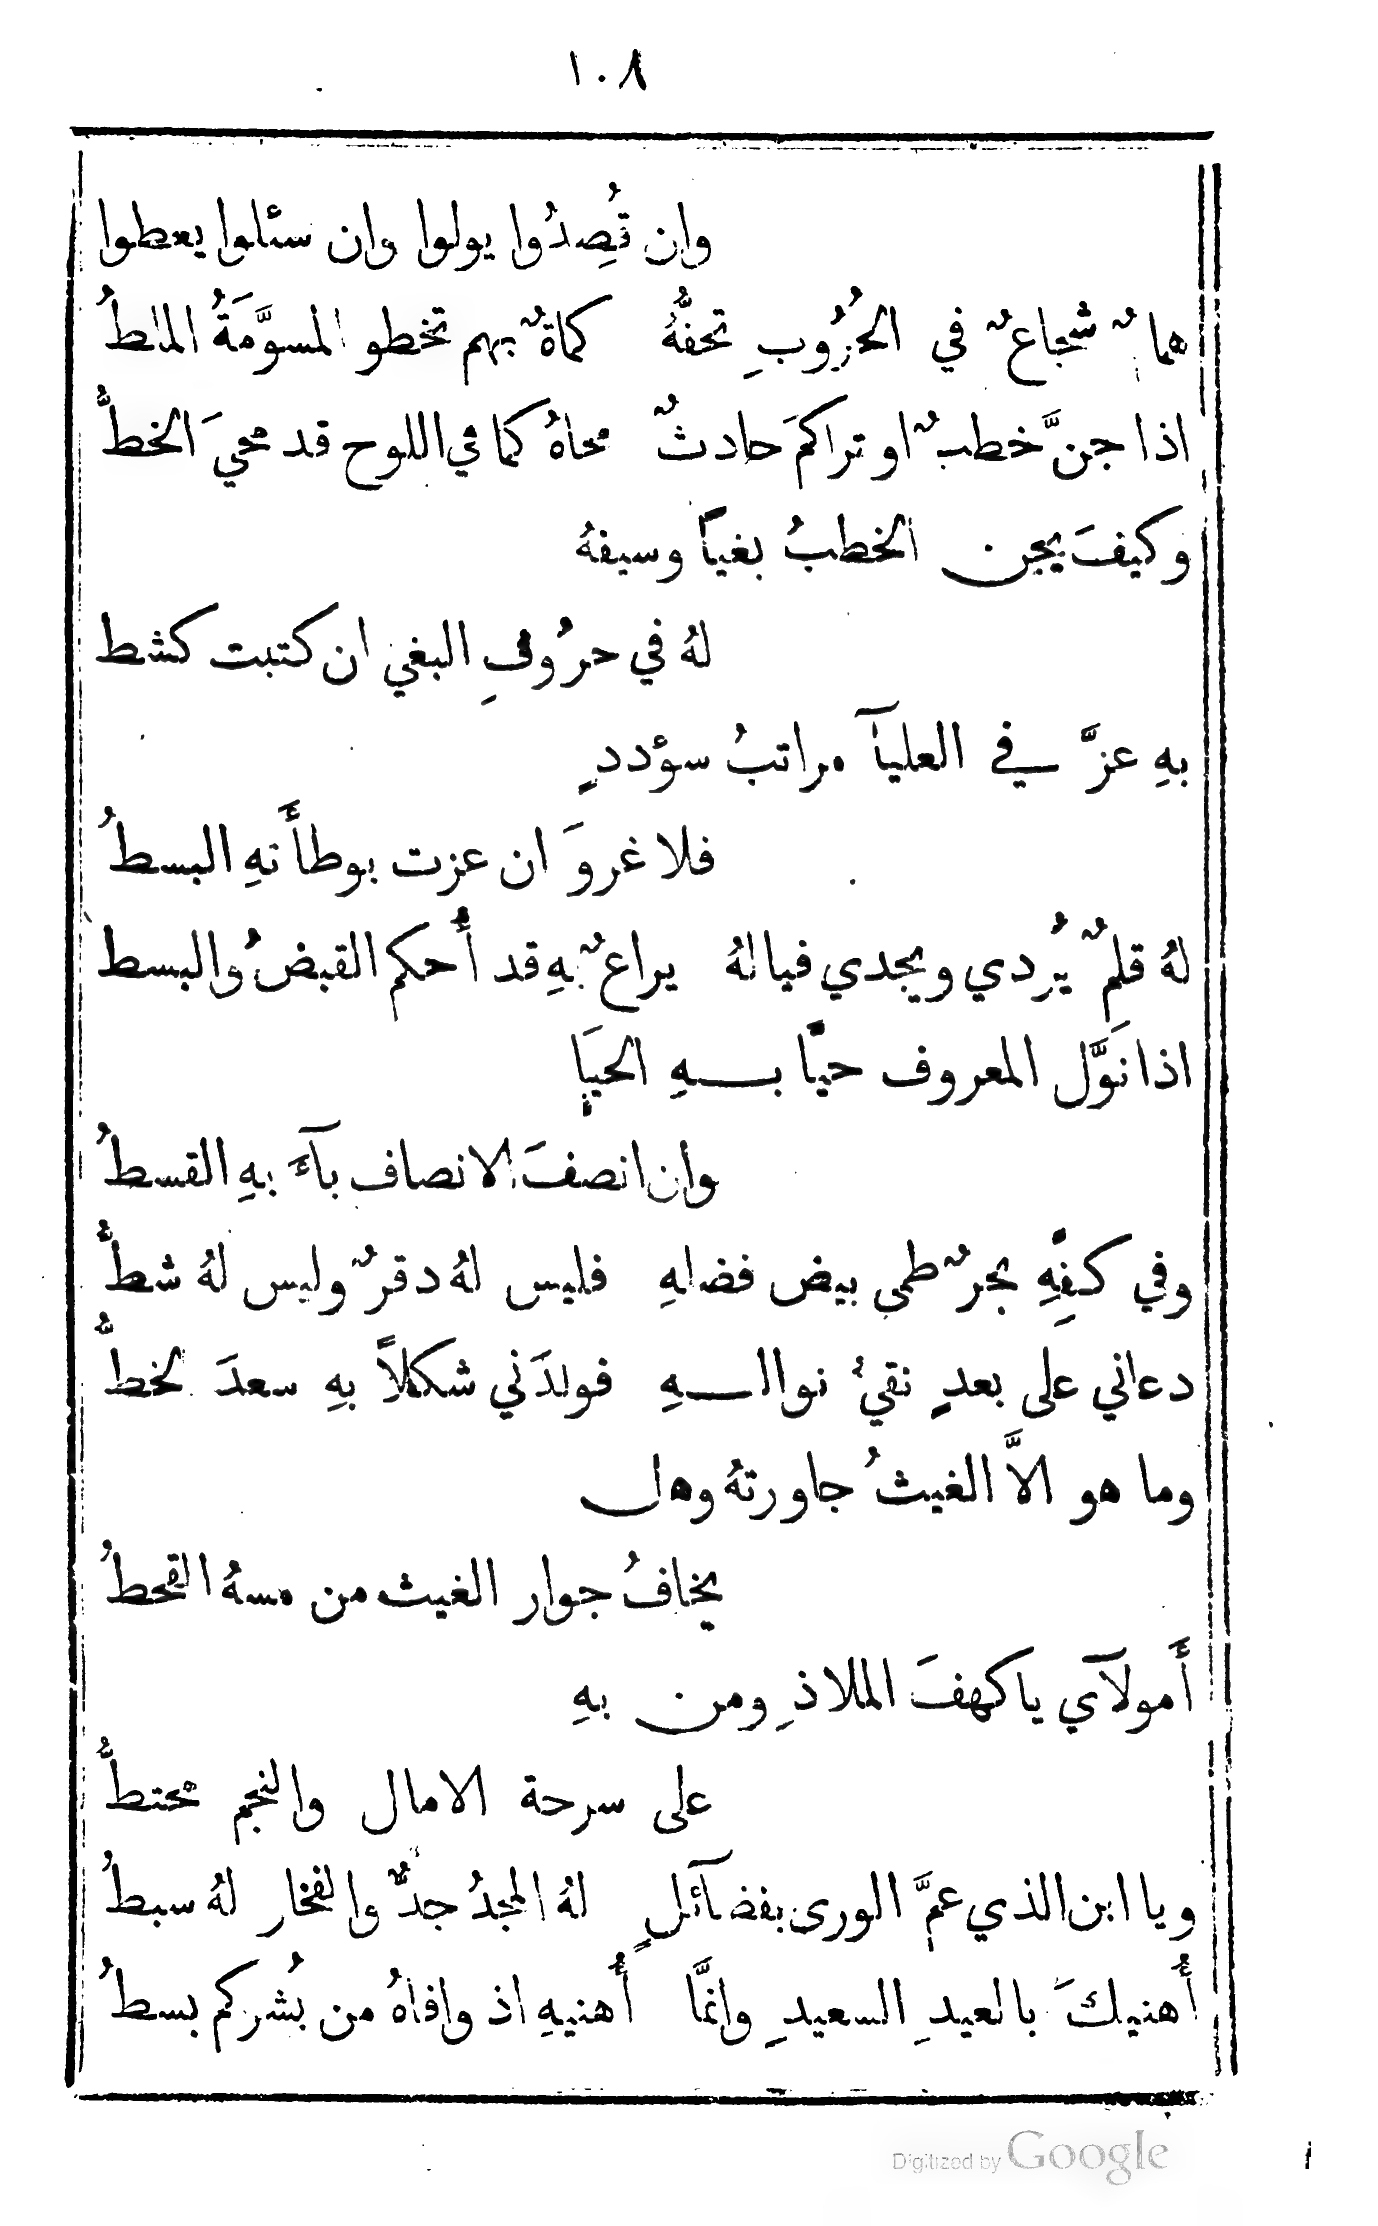 ١٠٨
وان قُصِدُوا يولوا وان سئلوا يعطوا
همامٌ شجاعٌ في الحرُوبِ تحفُّهُ كماةٌ بهم تخطو المسوَّمَةُ الملطُ
اذا جنَّ خطبٌ او تراكمَ حادثٌ محاهُ كما في اللوح قد محيَ الخطُّ
وكيفَ يجن الخطبُ بغياً وسيفهُ
لهُ في حرُوفِ البغي ان كتبت كشط
بهِ عزَّ في العليآ مراتبُ سؤددٍ
فلا غروَ ان عزت بوطأَتهِ البسطُ
لهُ قلمٌ يُردي ويجدي فيا لهُ يراعٌ بهِ قد أُحكم القبضُ والبسط
اذا نَوَّل المعروف حيَّا بــهِ الحيَا
وان انصفَ الانصاف بآءَ بهِ القسطُ
وفي كفِّهِ بحرٌ طمى بيض فضلهِ فليس لهُ دقرٌ وليس لهُ شطُّ
دعاني على بعدٍ نقيُ نوالــهِ فولدَني شكلاً بهِ سعدَ لخطُّ
وما هو الاَّ الغيثُ جاورتهُ وهل
يخافُ جوار الغيث من مسهُ القحطُ
أَمولآي ياكهفَ الملاذِ ومن بهِ
على سرحة الامال والنجم مختطُّ
ويا ابن الذي عمَّ الورى بفضآئلٍ لهُ المجدُ جدٌّ والفخار لهُ سبطُ
أُهنيكَ بالعيدِ السعيدِ وانمَّا أُهنيهِ اذ وافاهُ من بُشركم بسطُ
Digitized by Google